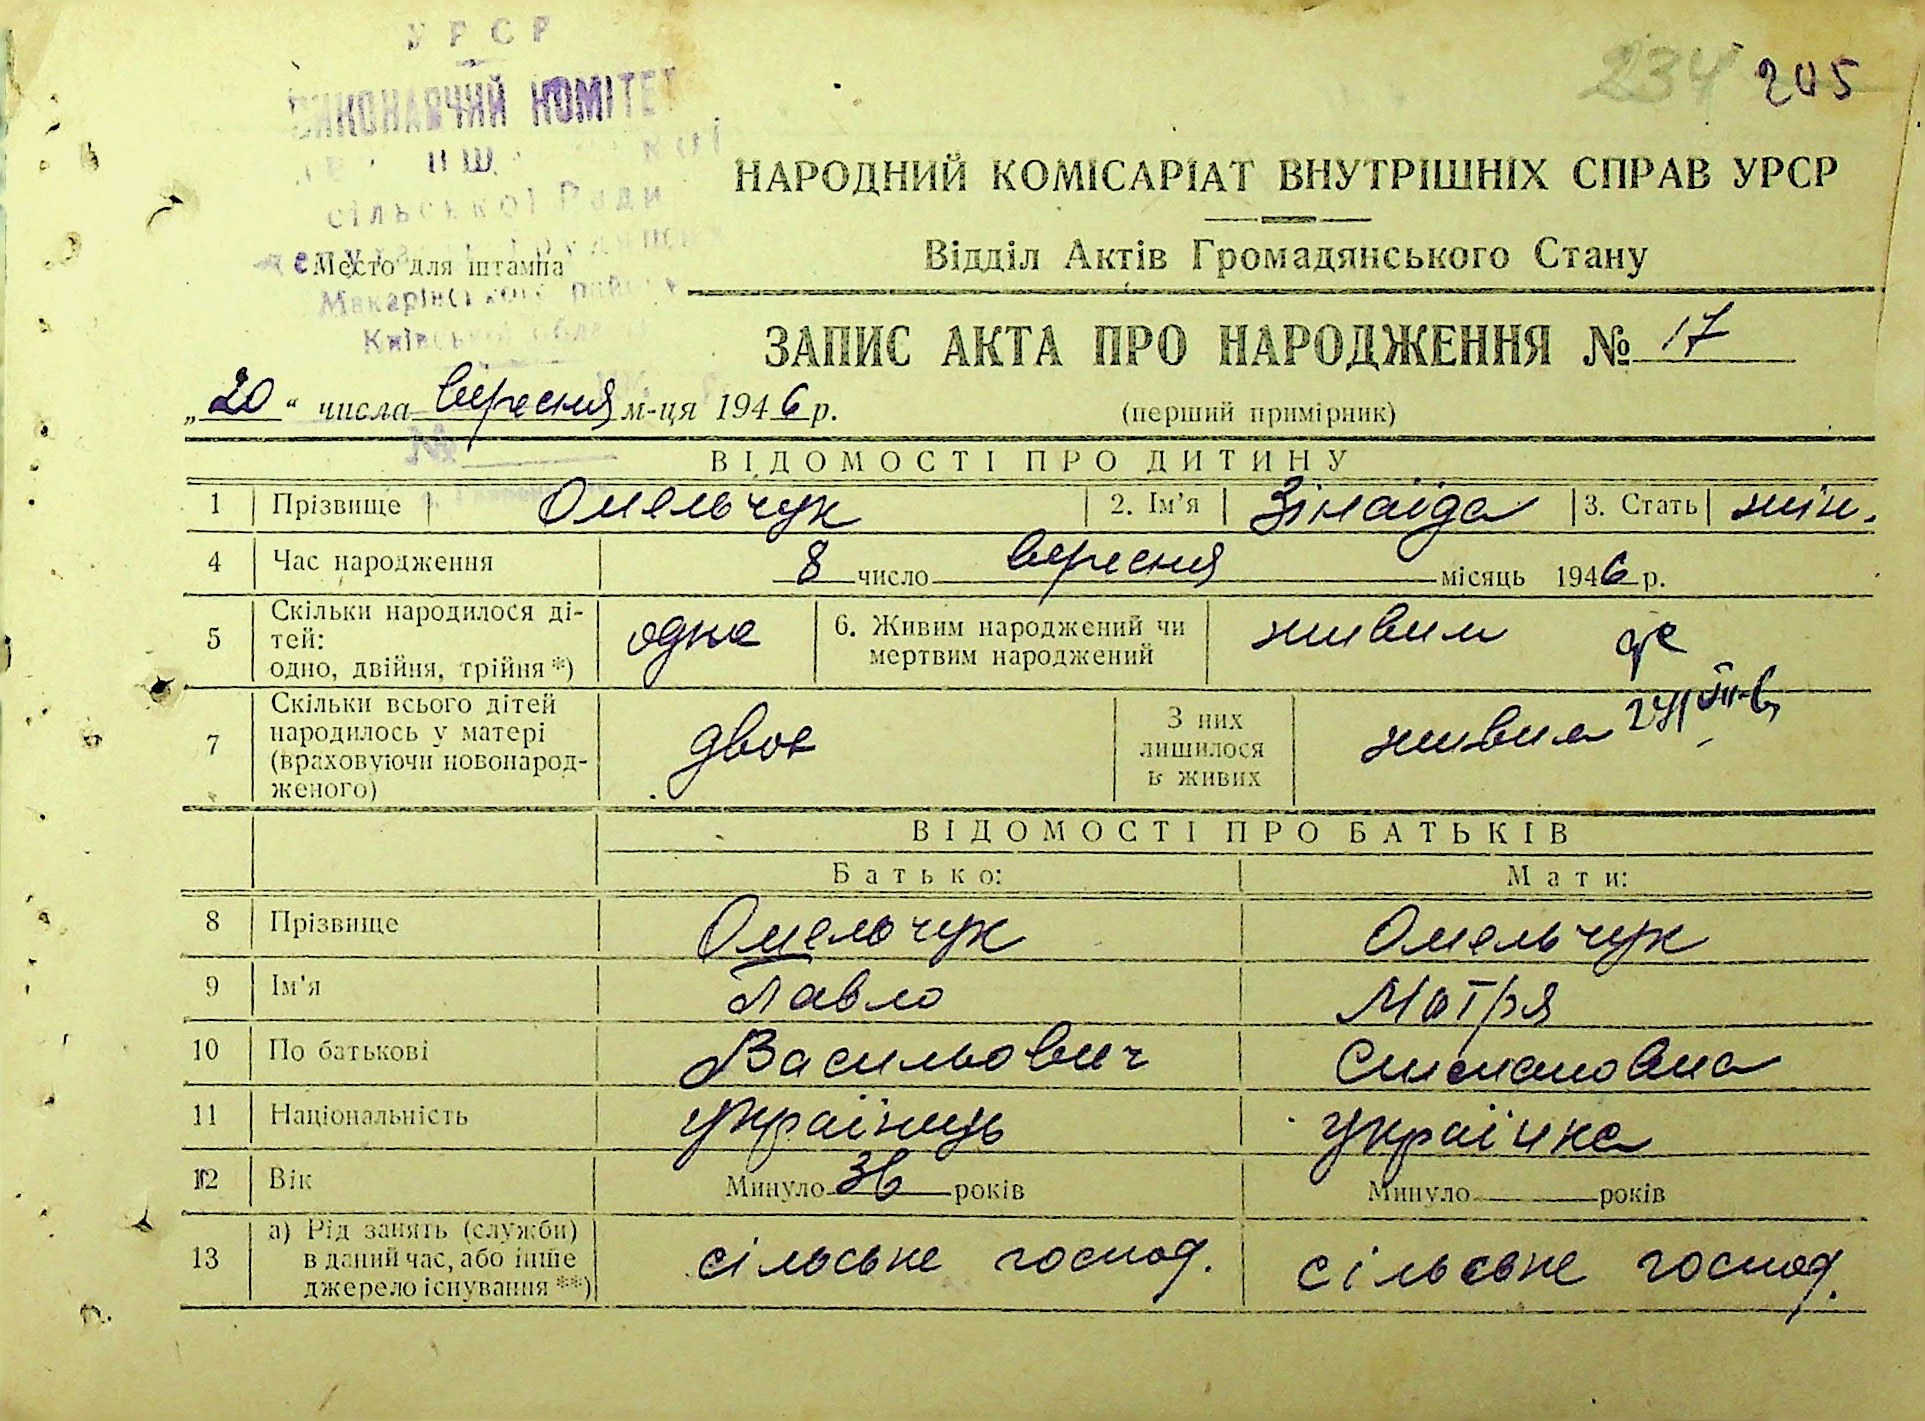 УРСР
ВИКОНАВЧИЙ КОМІТЕТ
сільської Ради
Место для штампа
Макарівського
Київської
234 205
НАРОДНИЙ КОМІСАРІАТ ВНУТРІШНІХ СПРАВ УРСР
Відділ Актів Громадянського Стану
ЗАПИС АКТА ПРО НАРОДЖЕННЯ № 17
„20“ числа вересня м-ця 1946 р. (перший примірник)
ВІДОМОСТІ ПРО ДИТИНУ
1 Прізвище Омельчук 2. Ім'я Зінаіда 3. Стать жін.
4 Час народження 8 число вересня місяць 1946 р.
5 Скільки народилося ді-
тей:
одно, двійня, трійня *) одна
6. Живим народжений чи
мертвим народжений живим
7 Скільки всього дітей
народилось у матері
(враховуючи новонарод-
женого) двоє
З них
лишилося
в живих
ВІДОМОСТІ ПРО БАТЬКІВ
Батько: Мати:
8 Прізвище Омельчук Омельчук
9 Ім'я Павло Мотря
10 По батькові Васильович
11 Національність українець українка
12 Вік Минуло 36 років Минуло років
13 а) Рід занять (служби)
в даний час, або інше
джерело існування **) сільське господ. сільське господ.